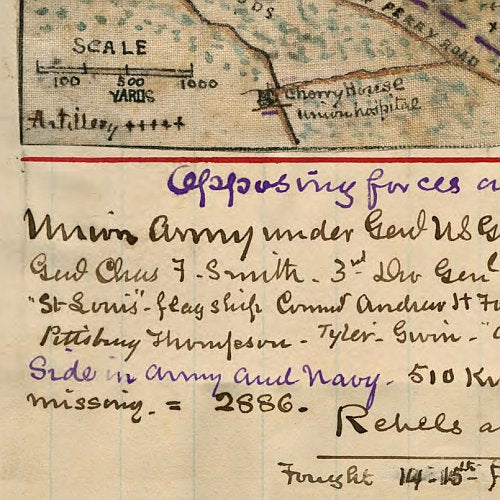 ODS
FERRY ROAD
SCALE
100 500 1000
YARDS
Cherry House
union hospital
Artillery +++++
Opposing forces a
Union Army under Genl US G
Genl Chas F. Smith. 3rd Div Genl
"St Louis" - flagship Comd Andrew H F
Pittsburg Thompson - Tyler - Gwin - "
Side in Army and Navy. 510 K
missing. = 2886.
Rebels a
Fought 14-15th F